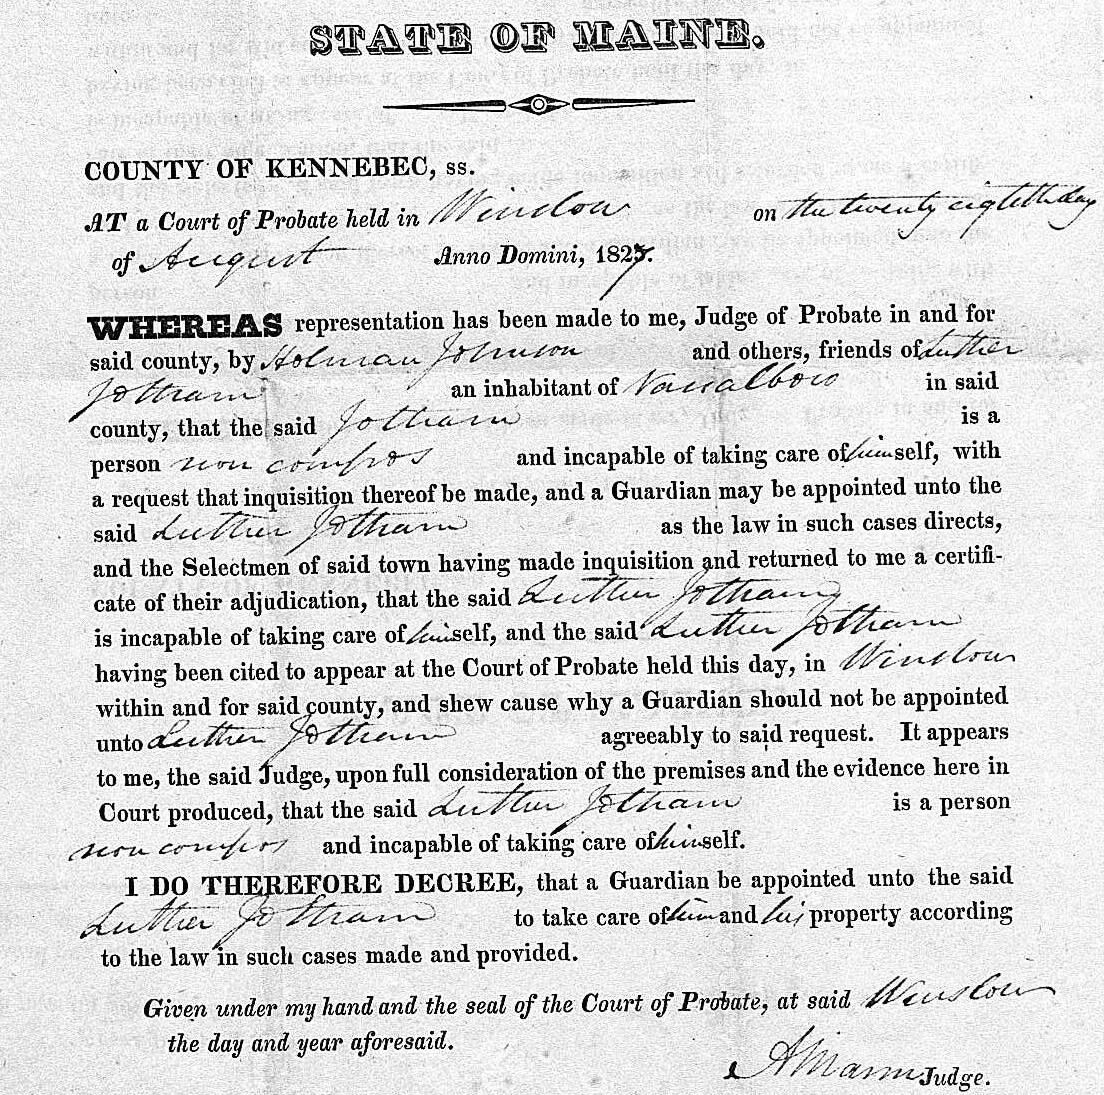 STATE OF MAINE.
COUNTY OF KENNEBEC, ss.
AT a Court of Probate held in Winslow on the twenty eigteth day
of August Anno Domini, 1827.
WHEREAS representation has been made to me, Judge of Probate in and for
said county, by Holman Johnson and others, friends of Luther
Jotham an inhabitant of Vassalboro in said
county, that the said Jotham is a
person non compos and incapable of taking care of himself, with
a request that inquisition thereof be made, and a Guardian may be appointed unto the
said Luther Jotham as the law in such cases directs,
and the Selectmen of said town having made inquisition and returned to me a certifi-
cate of their adjudication, that the said Luther Jotham
is incapable of taking care of himself, and the said Luther Jotham
having been cited to appear at the Court of Probate held this day, in Winslow
within and for said county, and shew cause why a Guardian should not be appointed
unto Luther Jotham agreeably to said request. It appears
to me, the said Judge, upon full consideration of the premises and the evidence here in
Court produced, that the said Luther Jotham is a person
non compos and incapable of taking care of himself.
I DO THEREFORE DECREE, that a Guardian be appointed unto the said
Luther Jotham to take care of him and his property according
to the law in such cases made and provided.
Given under my hand and the seal of the Court of Probate, at said Winslow
the day and year aforesaid.
A Mann Judge.